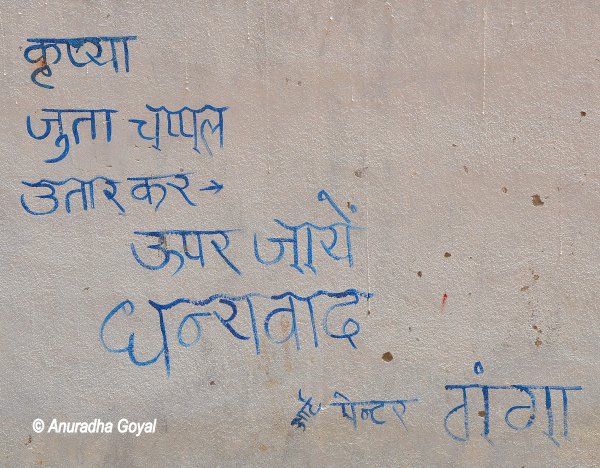 कृप्या
जुता चप्पल
उतार कर →
ऊपर जायें
धन्यवाद
पेन्टर गंगा
© Anuradha Goyal